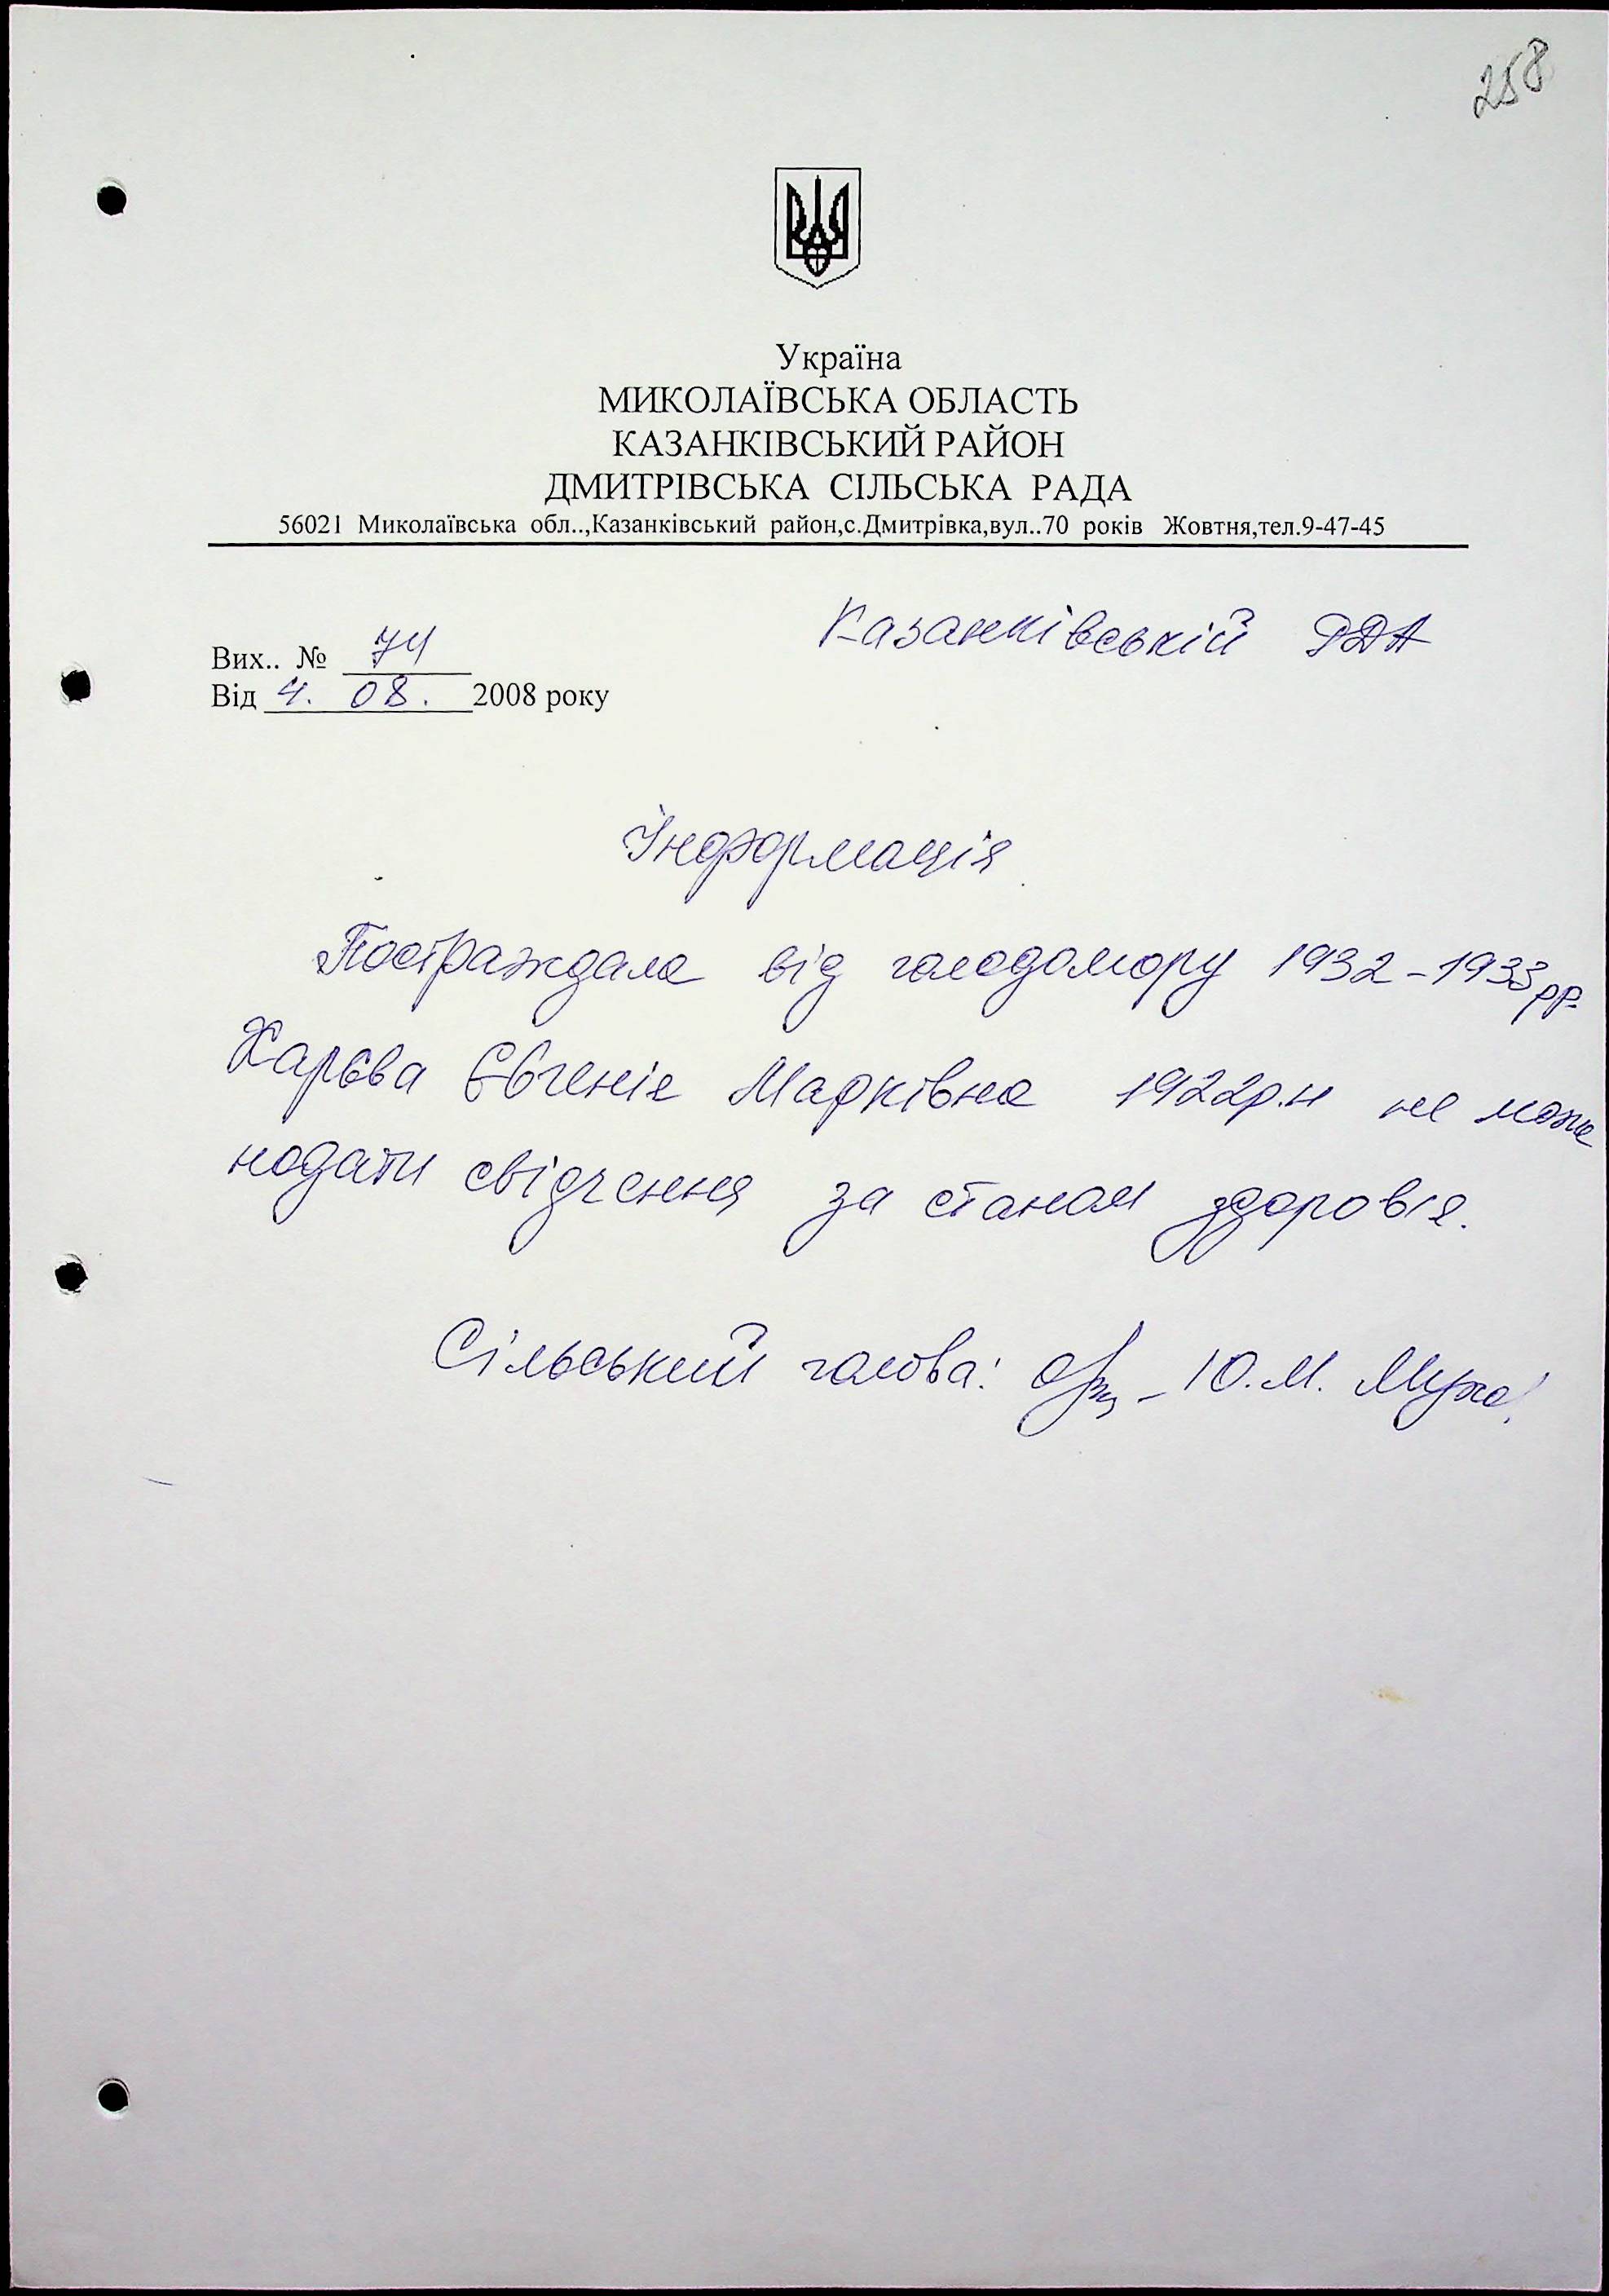 258
Україна
МИКОЛАЇВСЬКА ОБЛАСТЬ
КАЗАНКІВСЬКИЙ РАЙОН
ДМИТРІВСЬКА СІЛЬСЬКА РАДА
56021 Миколаївська обл..,Казанківський район,с.Дмитрівка,вул..70 років Жовтня,тел.9-47-45
Казанківській РДА
Вих.. № 74
Від 4. 08. 2008 року
Інформація
Постраждала від голодомору 1932-1933рр.
Харєва Євгенія Марківна 1922р.н не може
подати свідчення за станом здоров'я.
Сільський голова: Ю.М.